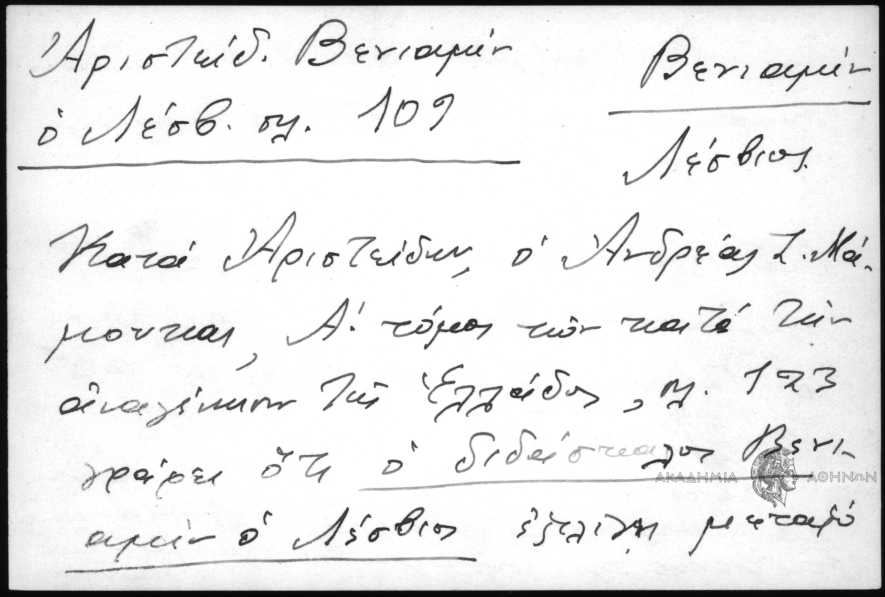 Ἀριστείδ. Βενιαμίν
ὁ Λέσβ. σλ. 109
Βενιαμίν
Λέσβιος
Κατά Ἀριστείδην, ὁ Ἀνδρέας Ζ. Μά-
μουκας, Α΄ τόμος τῶν κατά τήν
ἀναγέννησιν τῆς Ἑλλάδος, σλ. 123
γράφει ὅτι ὁ διδάσκαλος Βενι-
αμίν ὁ Λέσβιος ἐξελέγη μεταξύ
ΑΚΑΔΗΜΙΑ ΑΘΗΝΩΝ